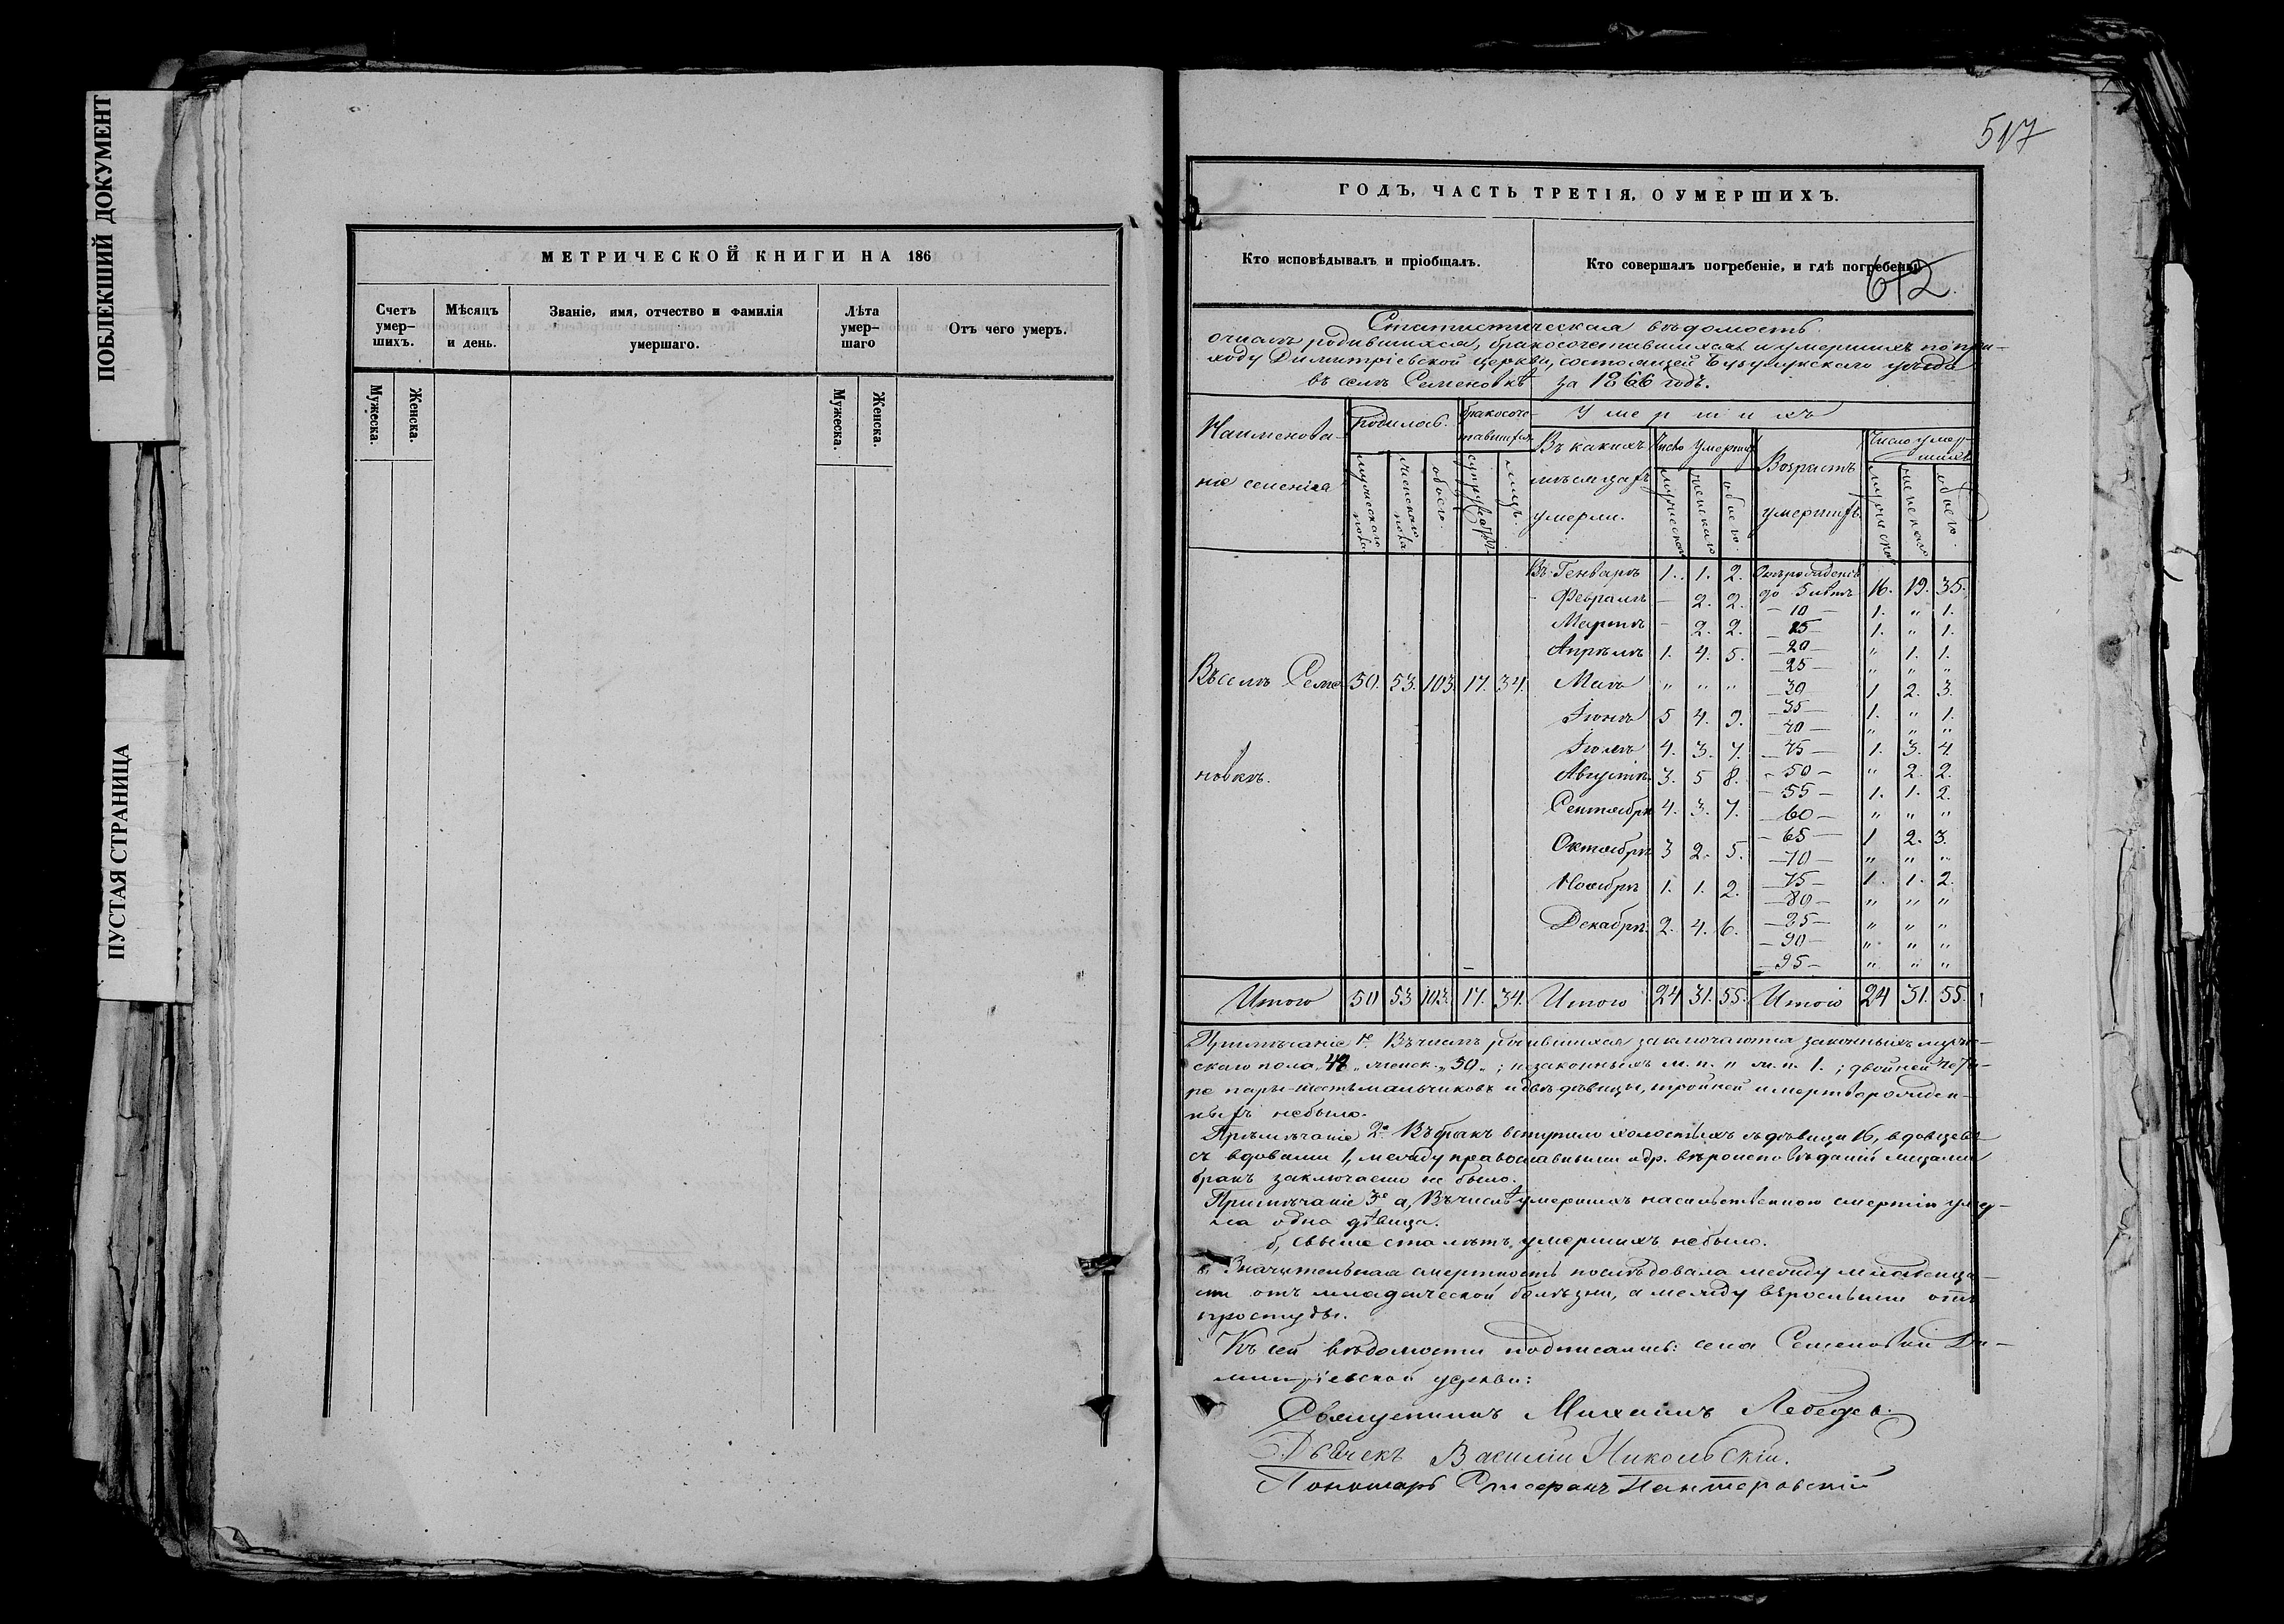 ПОБЛЕКШИЙ ДОКУМЕНТ
ПУСТАЯ СТРАНИЦА
МЕТРИЧЕСКОЙ КНИГИ НА 186
Счетъ умер- шихъ.
Мѣсяцъ и день.
Званіе, имя, отчество и фамилія умершаго.
Лѣта умер- шаго
Отъ чего умеръ.
Мужеска.
Женска.
Мужеска.
Женска.
517
ГОДЪ, ЧАСТЬ ТРЕТІЯ, О УМЕРШИХЪ.
Кто исповѣдывалъ и пріобщалъ.
Кто совершалъ погребеніе, и гдѣ погребены
612
Статистическая вѣдомость
о числѣ родившихся, бракосочетавшихся и умершихъ по при-
ходу Димитріевской церкви, состоящей Бузулукскаго уѣзда
въ селѣ Семеновкѣ за 1866 годъ.
Наименова-
ніе селенія
Родилось.
бракосоче-
тавшихся
Умершихъ
мужескаго пола
женскаго пола
обоего.
супружествъ
лицъ.
Въ какихъ мѣсяцахъ умерли.
Число Умершихъ
мужескаго
женскаго
обоего.
Возрастъ умершихъ
Число умер-
шихъ
мужеска
женскаго
обоего.
Въ Генварѣ 1. 1. 2. Отъ рожденія
до 5 лѣтъ 16. 19. 35.
Февралѣ — 2. 2. — 10 — 1. " 1.
Мартѣ — 2. 2. — 15 — 1. " 1.
Апрѣлѣ 1. 4. 5. — 20 — " 1. 1.
— 25 — " " "
Въ селѣ Семе- 50. 53. 103. 17. 34. Маѣ " " " — 30 — 1 2. 3.
Іюнѣ 5 4. 9. — 35 — 1. " 1.
— 40 — " " "
Іюлѣ 4. 3. 7. — 45 — 1. 3. 4
новкѣ. Августѣ 3. 5 8. — 50 — " 2. 2.
— 55 — 1. 1. 2.
Сентябрѣ 4. 3. 7. — 60 — " " "
— 65 — 1 2. 3.
Октябрѣ 3 2. 5. — 70 — " " "
Ноябрѣ 1. 1. 2. — 75 — 1. 1. 2.
— 80 — " " "
Декабрѣ 2. 4. 6. — 85 — " " "
— 90 — " " "
— 95 — " " "
Итого 50 53 103. 17. 34. Итого 24 31. 55. Итого 24 31. 55.
Примѣчаніе 1е Въ числѣ родившихся заключаются законныхъ муже-
скаго пола „48„ женск. „50„; незаконныхъ м. п. " ж. п. 1.; двойней четы-
ре пары шесть мальчиковъ и двѣ дѣвицы, тройней и мертворожден-
ныхъ небыло.
Примѣчаніе 2е Въ бракъ вступило холостыхъ съ дѣвицами 16, вдовцевъ
съ вдовами 1, между православными и др. вѣроисповѣданій лицами
бракъ заключаемо не было.
Примѣчаніе 3е а, Въ числѣ умершихъ насильственною смертію умер-
ла одна дѣвица.
б, свыше ста лѣтъ умершихъ небыло.
в. Значительная смертность послѣдовала между младенца-
ми отъ младенческой болѣзни, а между взрослыми отъ
простуды.
Къ сей вѣдомости подписались: села Семеновки Ди-
митріевской церкви:
Священникъ Михаилъ Лебедев.
Дьячекъ Василій Никольскій.
Пономарь